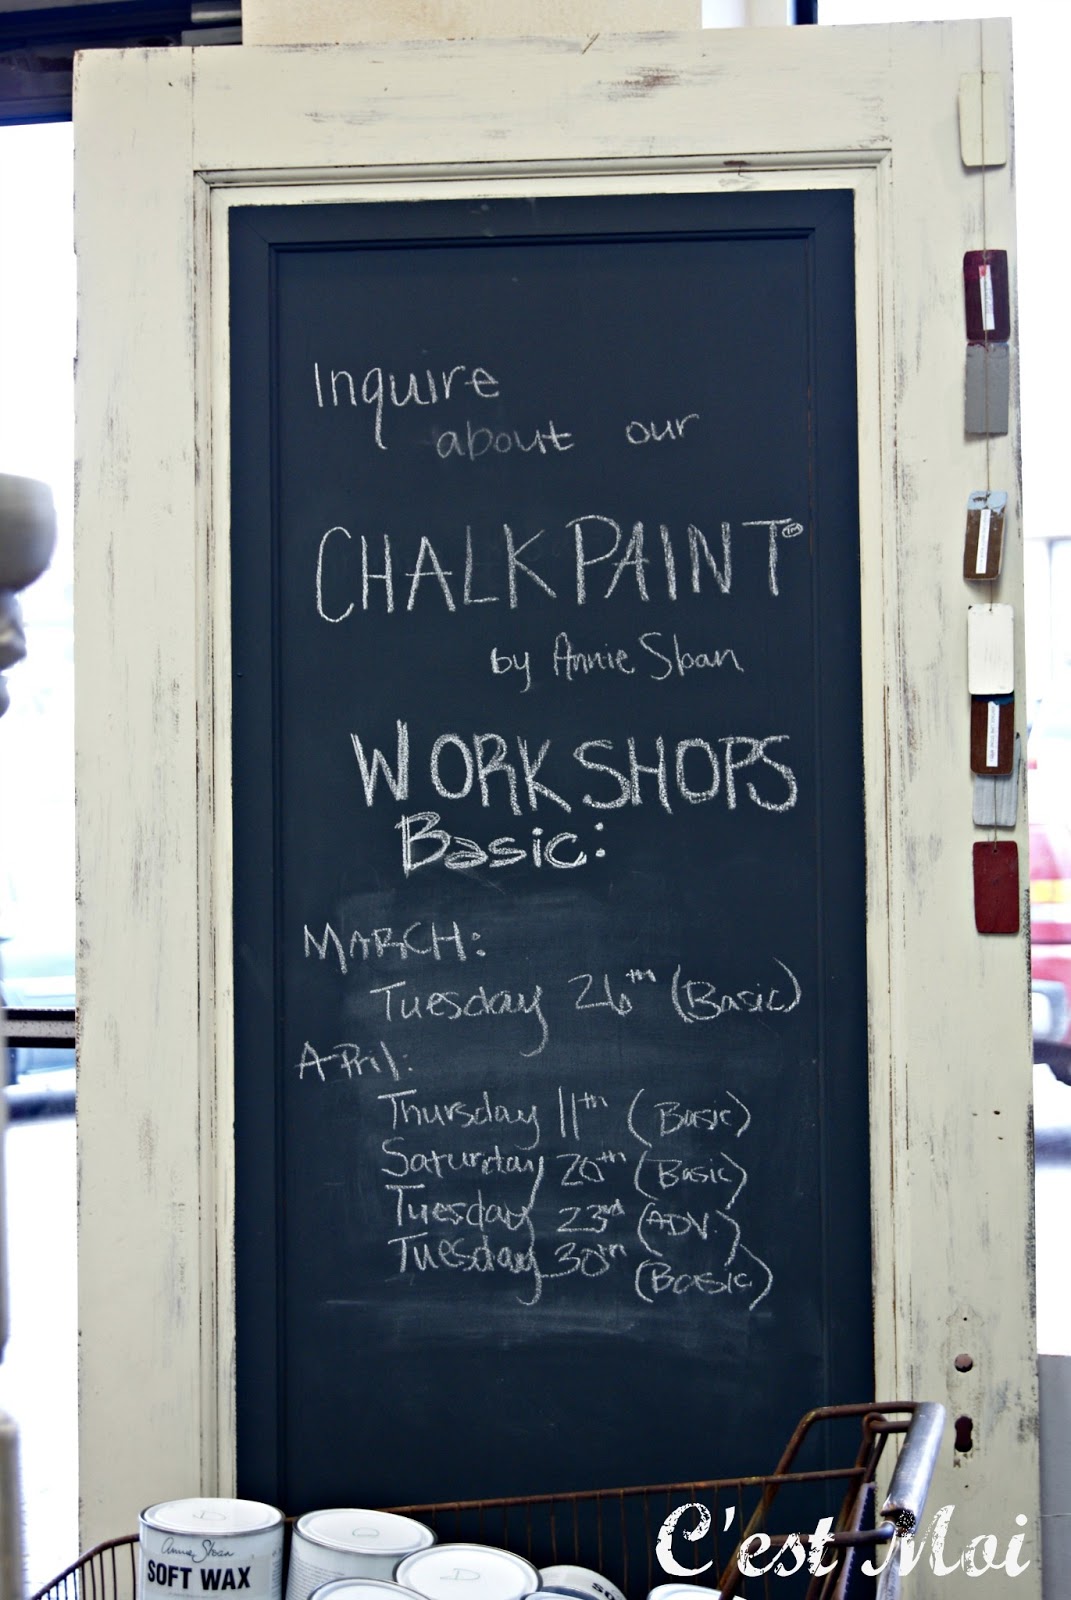 Inquire
about our
CHALK PAINT™
by Annie Sloan
WORKSHOPS
Basic:
MARCH:
Tuesday 26th (Basic)
April:
Thursday 11th (Basic)
Saturday 20th (Basic)
Tuesday 23rd (ADV.)
Tuesday 30th (Basic)
Annie Sloan
SOFT WAX
D
D
SO
C'est Moi